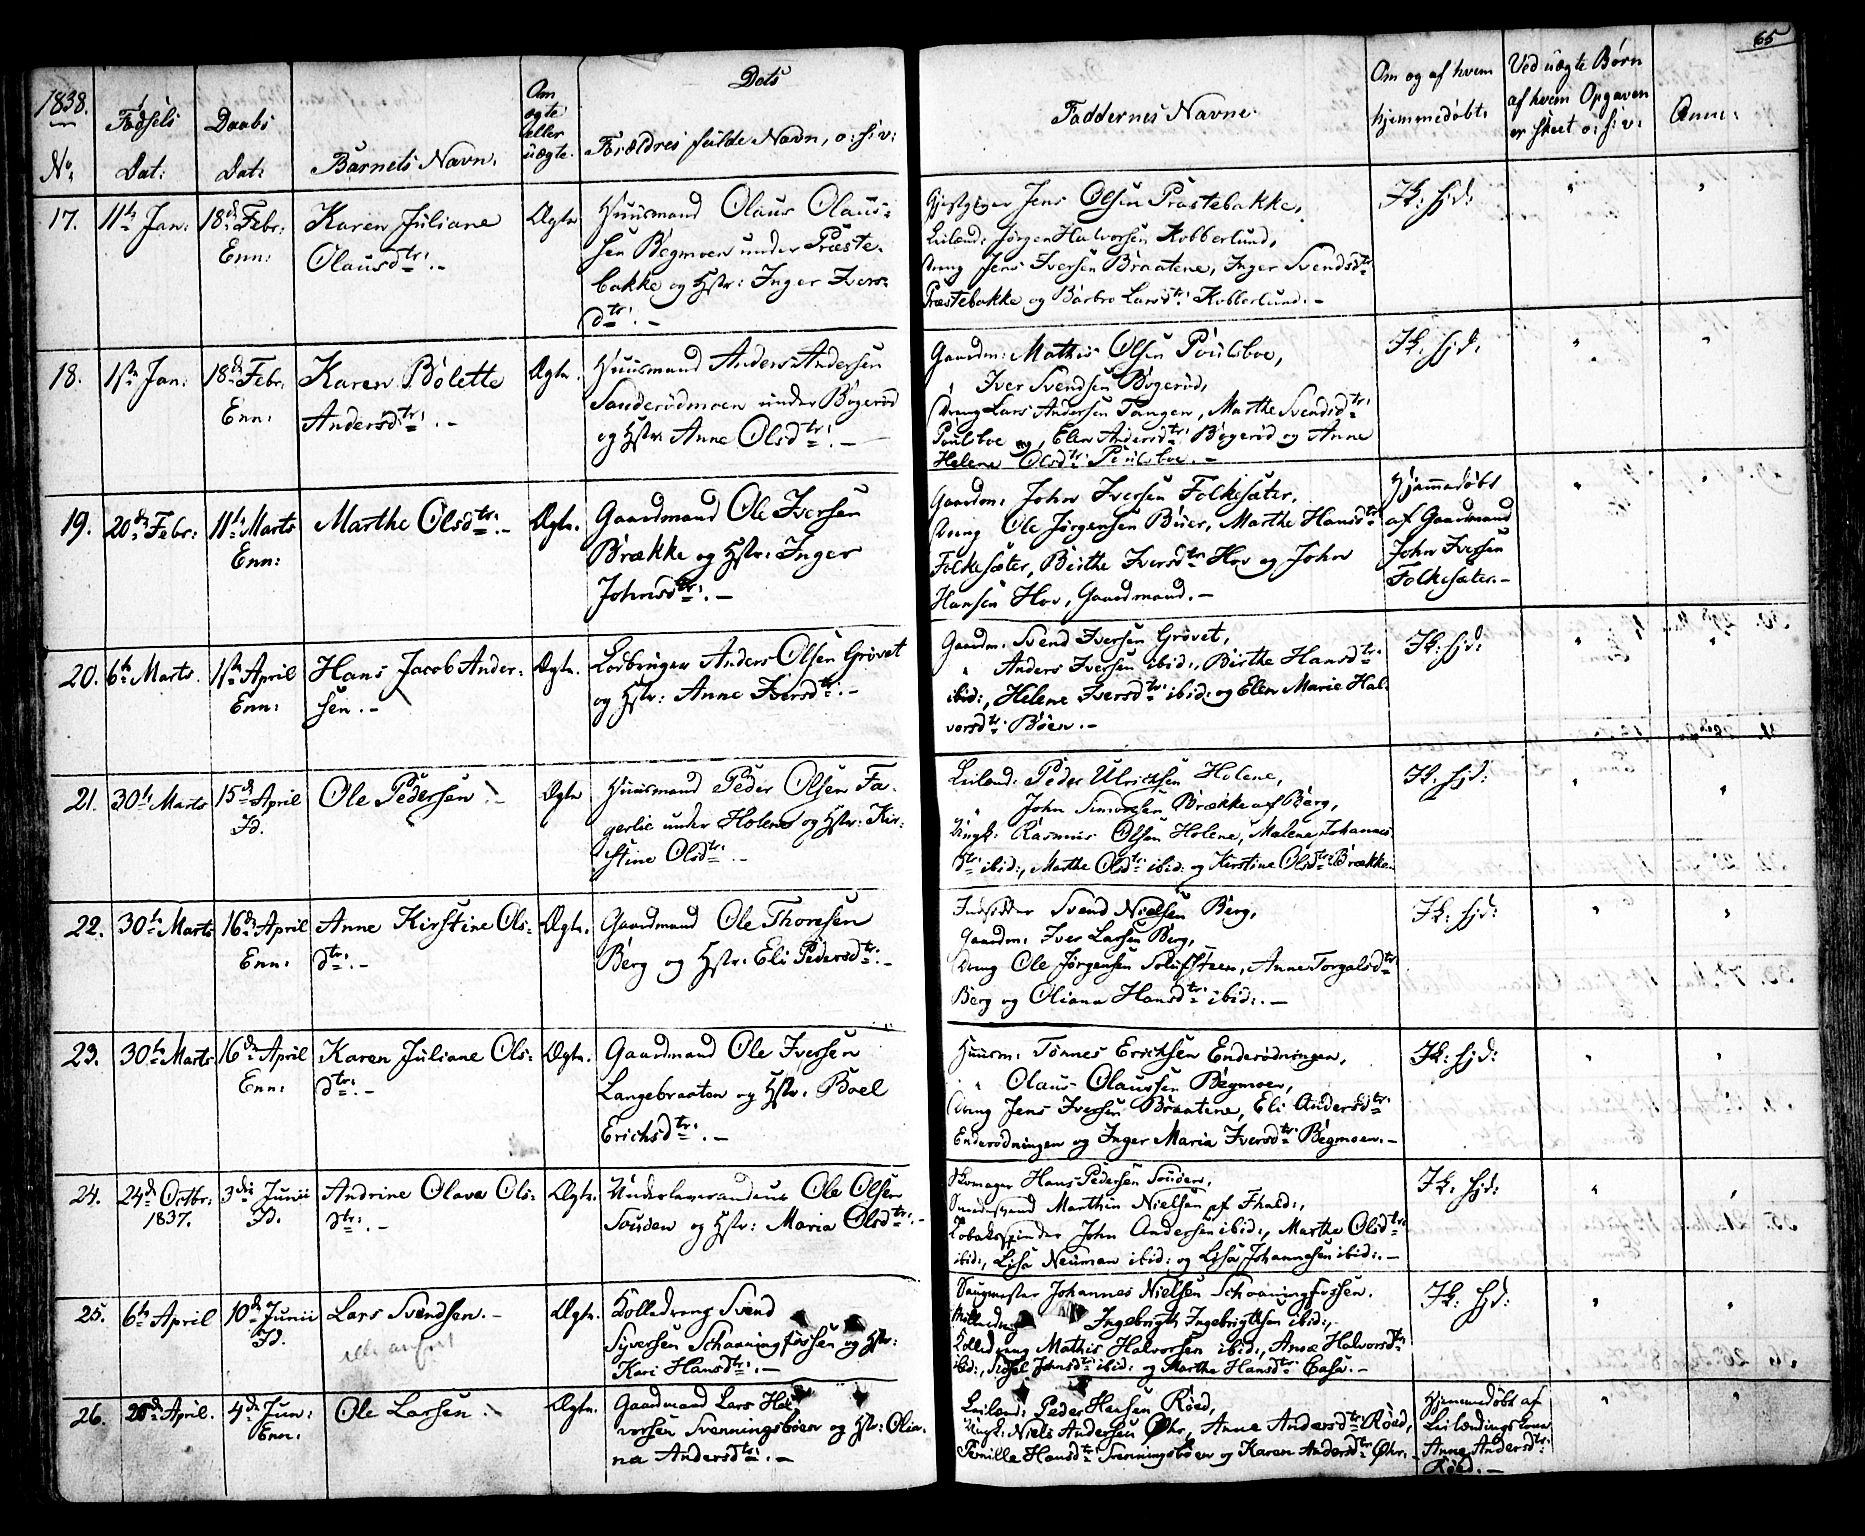 65
1838.
No.
Fødsels
Dat:
Daabs
Dat:
Barnets Navn.
Om
ægte
eller
uægte.
Dets
Forældres fulde Navn, o: s: v:
Faddernes Navne.
Om og af hvem
hjemmedøbt.
Ved uægte Børn
af hvem Opgaven
er skeet o: s: v:
Anm:
17. 11te Jan: 18de Febr: Enn:
Karen Juliane
Olausdtr: .-
Ægte
Huusmand Olaus Olaus-
sen Begmoen under Præste-
bakke og Hstr: Inger Ivers-
dtr: .-
Gjestgiver Jens Olsen Præstebakke,
Leilænd: Jørgen Halvorsen Kobberlund,
Dreng Jens Iversen Braatene, Inger Svendsdtr:
Præstebakke og Barbro Larsdtr: Kobberlund.-
Ik: hjd:
18. 1ste Jan: 18de Febr. Enn:
Karen Bolette
Andersdtr: .-
Ægte.
Huusmand Anders Andersen
Sanderødmoen under Bøgerød
og Hstr: Anne Olsdtr: .-
Gaardm: Mathis Olsen Poulsboe,
Iver Svendsen Bøgerød,
Dreng Lars Andersen Tangen, Marthe Svendsdtr:
Poulsboe og, Elen Andersdtr: Bøgerød og Anne
Helene Olsdtr: Poulsboe.-
Ik: hjd:
19. 20de Febr: 11te Marts Enn:
Marthe Olsdtr: .-
Ægte.
Gaardmand Ole Iversen
Brække og Hstr: Inger
Johnsdtr: .-
Gaardm: John Iversen Folkesæter,
Dreng Ole Jørgensen Buer, Marthe Hansdtr:
Folkesæter, Birthe Iversdtr: Hov og John
Hansen Hov, Gaardmand.-
Hjemmedøbt
af Gaardmand
John Iversen
Folkesæter.-
20. 6te Marts. 1ste April Enn:
Hans Jacob Ander-
sen.-
Ægte.
Anders Olsen Grøvet
og Hstr: Anne Iversdtr: .-
Gaardm: Svend Iversen Grøvet,
" Anders Iversen ibid:, Birthe Hansdtr:
ibid:, Helene Iversdtr: ibid: og Elen Marie Hal-
vorsdtr: Bøen.-
Ik: hjd:
21. 30te Marts 15de April Fd.
Ole Pedersen.-
Ægte
Huusmand Peder Olsen Fa-
gerlie under Holene og Hstr: Kir-
stine Olsdtr: .-
Leilænd: Peder Ulrichsen Holene,
" John Simonsen Brække af Berg,
Ungk: Rasmus Olsen Holene, Malene Johannes-
dtr: ibid:, Marthe Olsdtr: ibid: og Kirstine Olsdtr: Brække.
Ik: hjd:
22. 30te Marts 16de April Enn:
Anne Kirstine Ols-
dtr: .-
Ægte.
Gaardmand Ole Thoresen
Berg og Hstr: Eli Pedersdtr: .-
Indsidder Svend Nielsen Berg,
Gaardm: Iver Larsen Berg,
Dreng Ole Jørgensen Anne Torgalsdtr:
Berg og Oliana Hansdtr: ibid: .-
Ik: hjd:
23. 30te Marts. 16de April Enn:
Karen Juliane Ols-
dtr: .-
Ægte.
Gaardmand Ole Iversen
Langebraaten og Hstr: Boel
Erichsdtr: .-
Huusm: Tønnes Erichsen Enderødningen,
" Olaus Olaussen Begmoen,
Dreng Jens Iversen Braatene, Eli Andersdtr:
Enderødningen og Inger Maria Iversdtr: Begmoen.-
Ik: hjd:
24. 24de Octbr: 1837. 3die Junii Fd.
Andrine Olava Ols-
dtr: .-
Ægte.
Underleverandeur Ole Olsen
Souden og Hstr: Maria Olsdtr: .-
Skomager Hans Pedersen Souden,
Smedsvend Marthin Nielsen af Fhald:,
Tobaksspinder John Andersen ibid:, Marthe Olsdtr:
ibid:, Lisa Neuman ibid: og Lisa Johannesen ibid: .-
Ik: hjd:
25. 6te April 10de Junii Fd.
Lars Svendsen.-
Ægte.
Kolledreng Svend
Syversen Schanningfossen og Hstr:
Kari Hansdtr: .-
Saugmester Johannes Nielsen Schanningfossen,
Ingebrigth Ingebrigtsen ibid:,
Kolledreng Mathis Halvorsen ibid:, Anne Halvorsdtr:
ibid:, Sidsel Johnsdtr: ibid: og Marthe Hansdtr: .-
Ik: hjd:
26. April. 4de Jun: Enn:
Ole Larsen.
Ægte.
Gaardmand Lars Hal-
vorsen Svenningsbøen og Hstr: Olia-
na Andersdtr: .-
Leilænd: Peder Hansen Røed,
Ungk: Niels Andersen Øhr, Anne Andersdtr: Røed,
Pernille Hansdtr: Svenningsbøen og Karen Andersdtr: Øhr.-
Hjemmedøbt af
Leilændingskone
Anne Andersdtr:
Røed.-